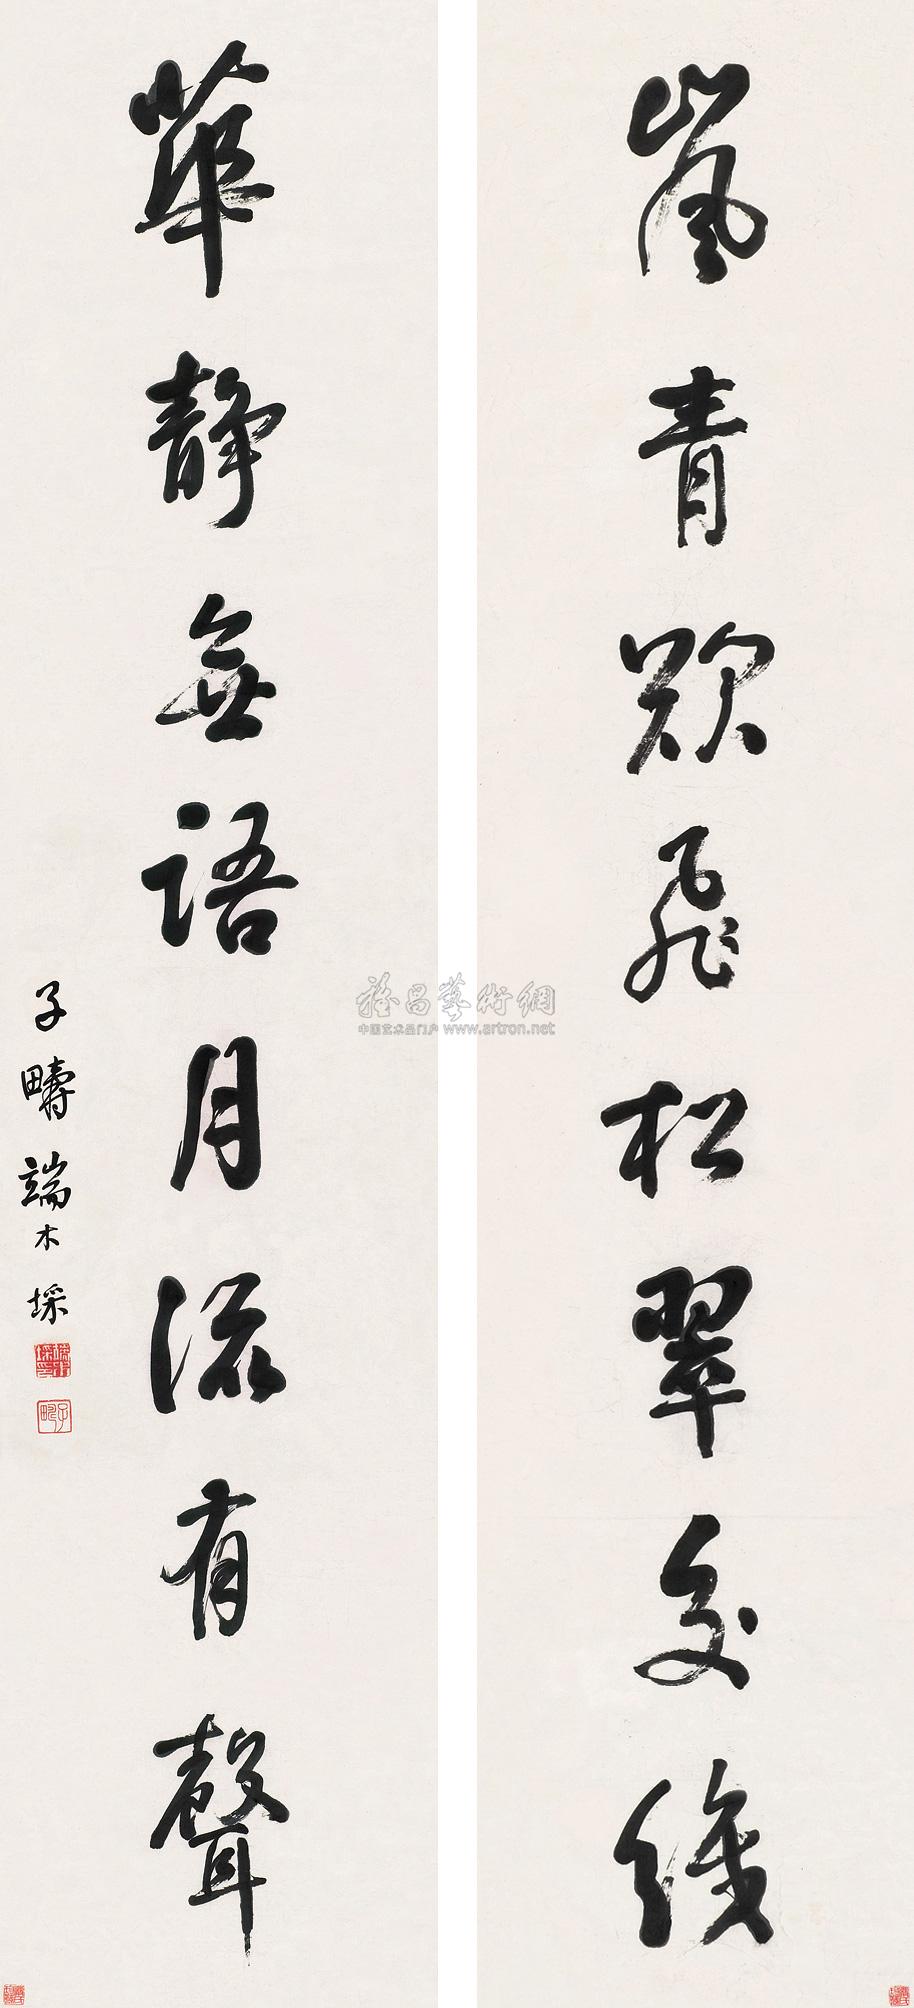 嵐青欲飛松翠交織
華靜無語月流有聲
子疇端木埰
雅昌藝術網
中国艺术品门户 www.artron.net